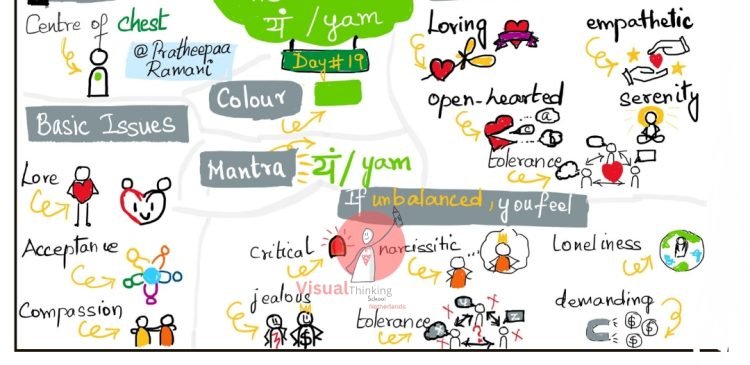 यं / yam
Centre of chest
@Pratheepaa
Ramani
Day#19
Colour
Loving
empathetic
open-hearted
serenity
tolerance
Basic Issues
Mantra
यं / yam
Love
Acceptance
Compassion
If unbalanced, you feel
Critical
narcissitic...
Loneliness
jealous
tolerance
demanding
VisualThinking
School
Netherlands